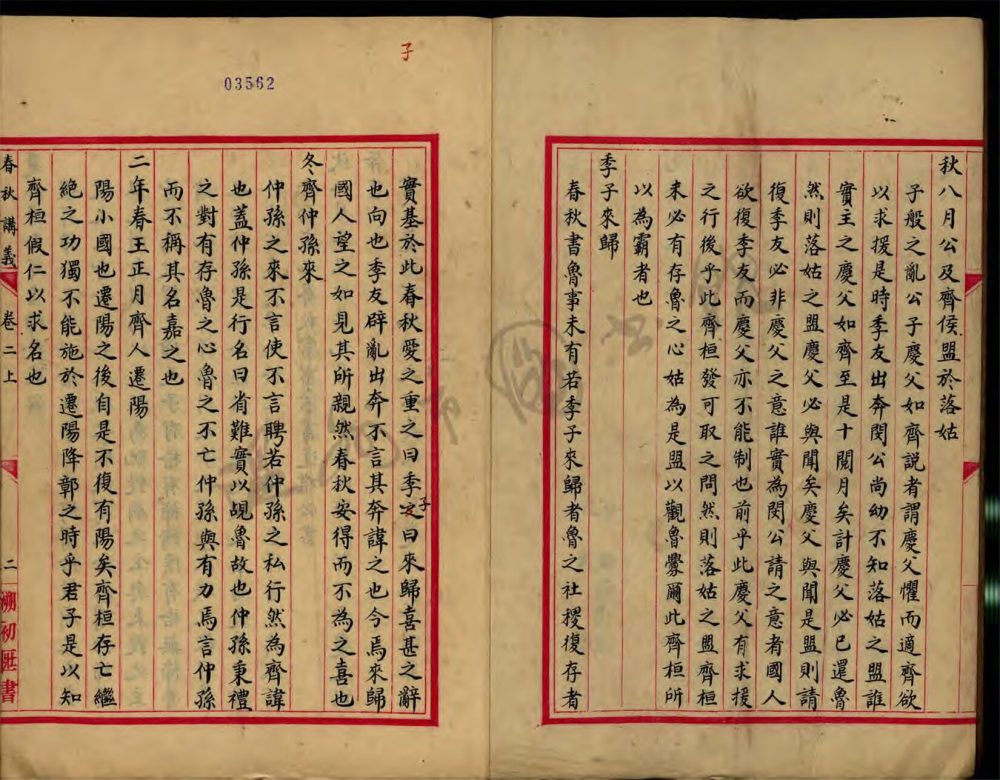 秋八月公及齊侯盟於落姑
子般之亂公子慶父如齊説者謂慶父懼而適齊欲
以求援是時季友出奔閔公尚幼不知落姑之盟誰
實主之慶父如齊至是十閱月矣計慶父必已還魯
然則落姑之盟慶父必與聞矣慶父與聞是盟則請
復季友必非慶父之意誰實為閔公請之意者國人
欲復季友而慶父亦不能制也前乎此慶父有求援
之行後乎此齊桓發可取之問然則落姑之盟齊桓
未必有存魯之心姑為是盟以觀魯釁爾此齊桓所
以為霸者也
季子來歸
春秋書魯事未有若季子來歸者魯之社稷復存者
子
03562
實基於此春秋愛之重之曰季子曰來歸喜甚之辭
也向也季友辟亂出奔不言其奔諱之也今焉來歸
國人望之如見其所親然春秋安得而不為之喜也
冬齊仲孫來
仲孫之來不言使不言聘若仲孫之私行然為齊諱
也蓋仲孫是行名曰省難實以覘魯故也仲孫秉禮
之對有存魯之心魯之不亡仲孫與有力焉言仲孫
而不稱其名嘉之也
二年春王正月齊人遷陽
陽小國也遷陽之後自是不復有陽矣齊桓存亡繼
絕之功獨不能施於遷陽降鄣之時乎君子是以知
齊桓假仁以求名也
春秋講義 卷二上 二